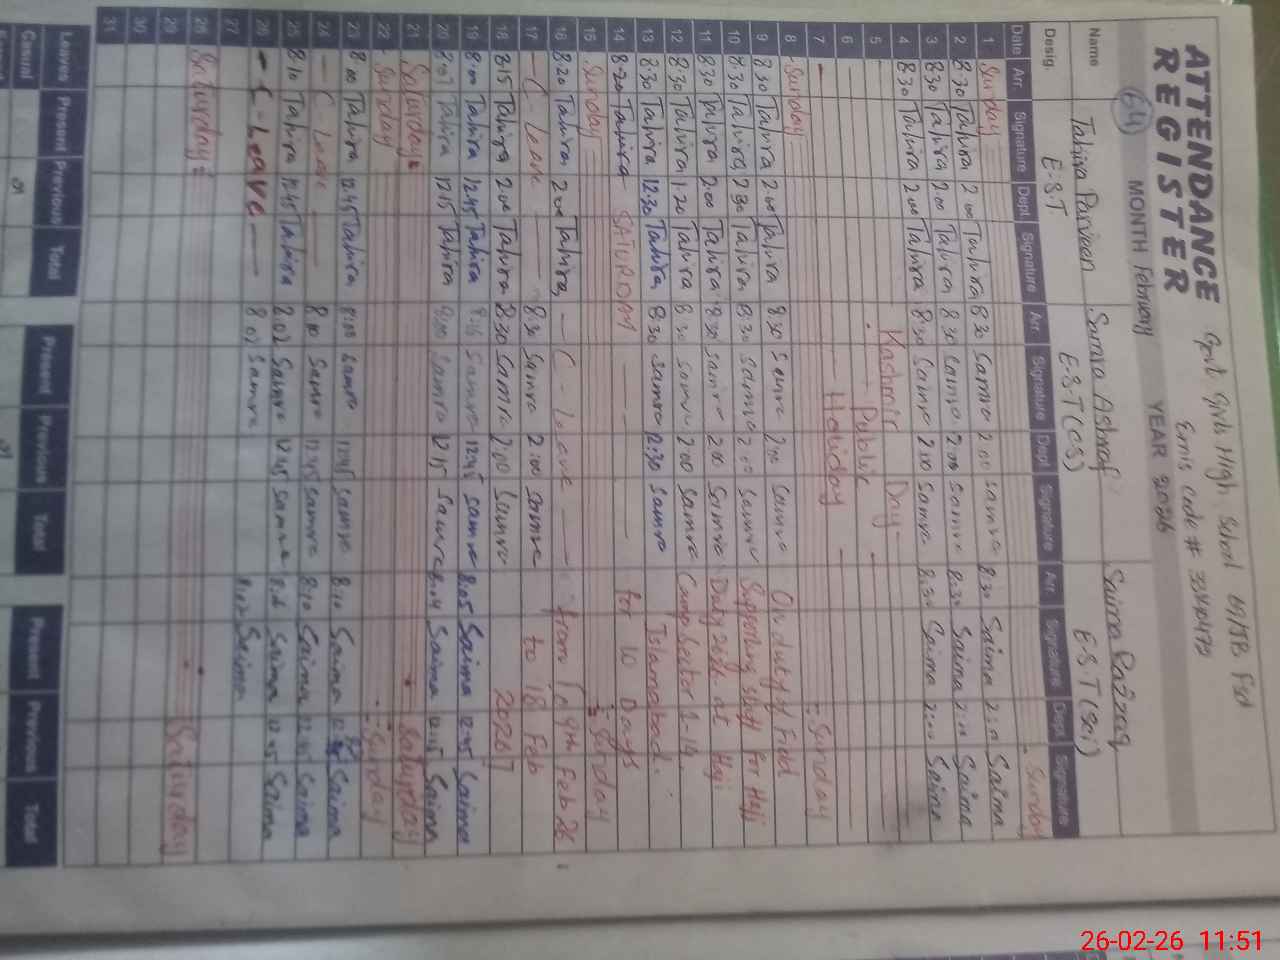 ATTENDANCE REGISTER
Govt Girls High School
Emis code #
64 MONTH February YEAR 2026
Name Tahira Parveen Samra Ashraf Saima Razzaq
Desig. E.S.T E.S.T (CS) E.S.T (Sci)
Date Arr. Signature Dept Signature Arr. Signature Dept Signature Arr. Signature Dept Signature
1 Sunday Sunday
2 8:30 Tahira 2:00 Tahira 8:30 Samra 2:00 samra 8:30 Saima 2:00 Saima
3 8:30 Tahira 2:00 Tahira 8:30 Samra 2:00 samra 8:30 Saima 2:00 Saima
4 8:30 Tahira 2:00 Tahira 8:30 Samra 2:00 samra 8:30 Saima 2:00 Saima
5 Kashmir Day
6 Public
7 Holiday
8 Sunday Sunday
9 8:30 Tahira 2:00 Tahira 8:30 Samra 2:00 samra On duty of Field
10 8:30 Tahira 2:30 Tahira 8:30 samra 2:00 samra Supporting staff for Hajj
11 8:30 Tahira 2:00 Tahira 8:30 samra 2:00 samra Duty 2026 at Haji
12 8:30 Tahira 1:20 Tahira 8:30 samra 2:00 samra Camp Sector I-14
13 8:30 Tahira 12:30 Tahira 8:30 samra 12:30 samra Islamabad.
14 8:20 Tahira SATURDAY for 10 Days
15 Sunday Sunday
16 8:20 Tahira 2:00 Tahira C-Leave from (09th Feb 26
17 C-Leave 8:30 Samra 2:00 samra to 18 Feb
18 8:15 Tahira 2:00 Tahira 8:30 Samra 2:00 Samra 2026)
19 8:00 Tahira 12:45 Tahira 8:15 Samra 12:45 samra 8:05 Saima 12:45 Saima
20 8:07 Tahira 12:15 Tahira 8:00 Samra 12:15 samra 8:04 Saima 12:15 Saima
21 Saturday Saturday
22 Sunday Sunday
23 8:00 Tahira 12:45 Tahira 8:00 Samra 12:45 samra 8:10 Saima Saima
24 C Leave 8:00 Samra 12:45 samra 8:10 Saima 12:45 Saima
25 8:10 Tahira 12:45 Tahira 8:02 Samra 12:45 samra Saima 12:45 Saima
26 C-Leave 8:02 Samra 8:02 Saima
27
28 Saturday Saturday
29
30
31
Leaves Present Previous Total Present Previous Total Present Previous Total
Casual
26-02-26 11:51